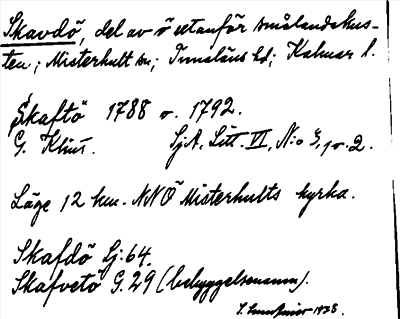 Skavdö, del av ö utanför smålandskus-
ten; Misterhult sn; Tunaläns hd; Kalmar l.
"Skaftö" 1788 o. 1792.
G. Klint. SjA, Litt. VI, N:o 3, 1 o. 2.
Läge 12 km. NNÖ Misterhults kyrka.
Skafdö Lj: 64.
Skafvetö G. 29 (bebyggelsenamn).
1938.